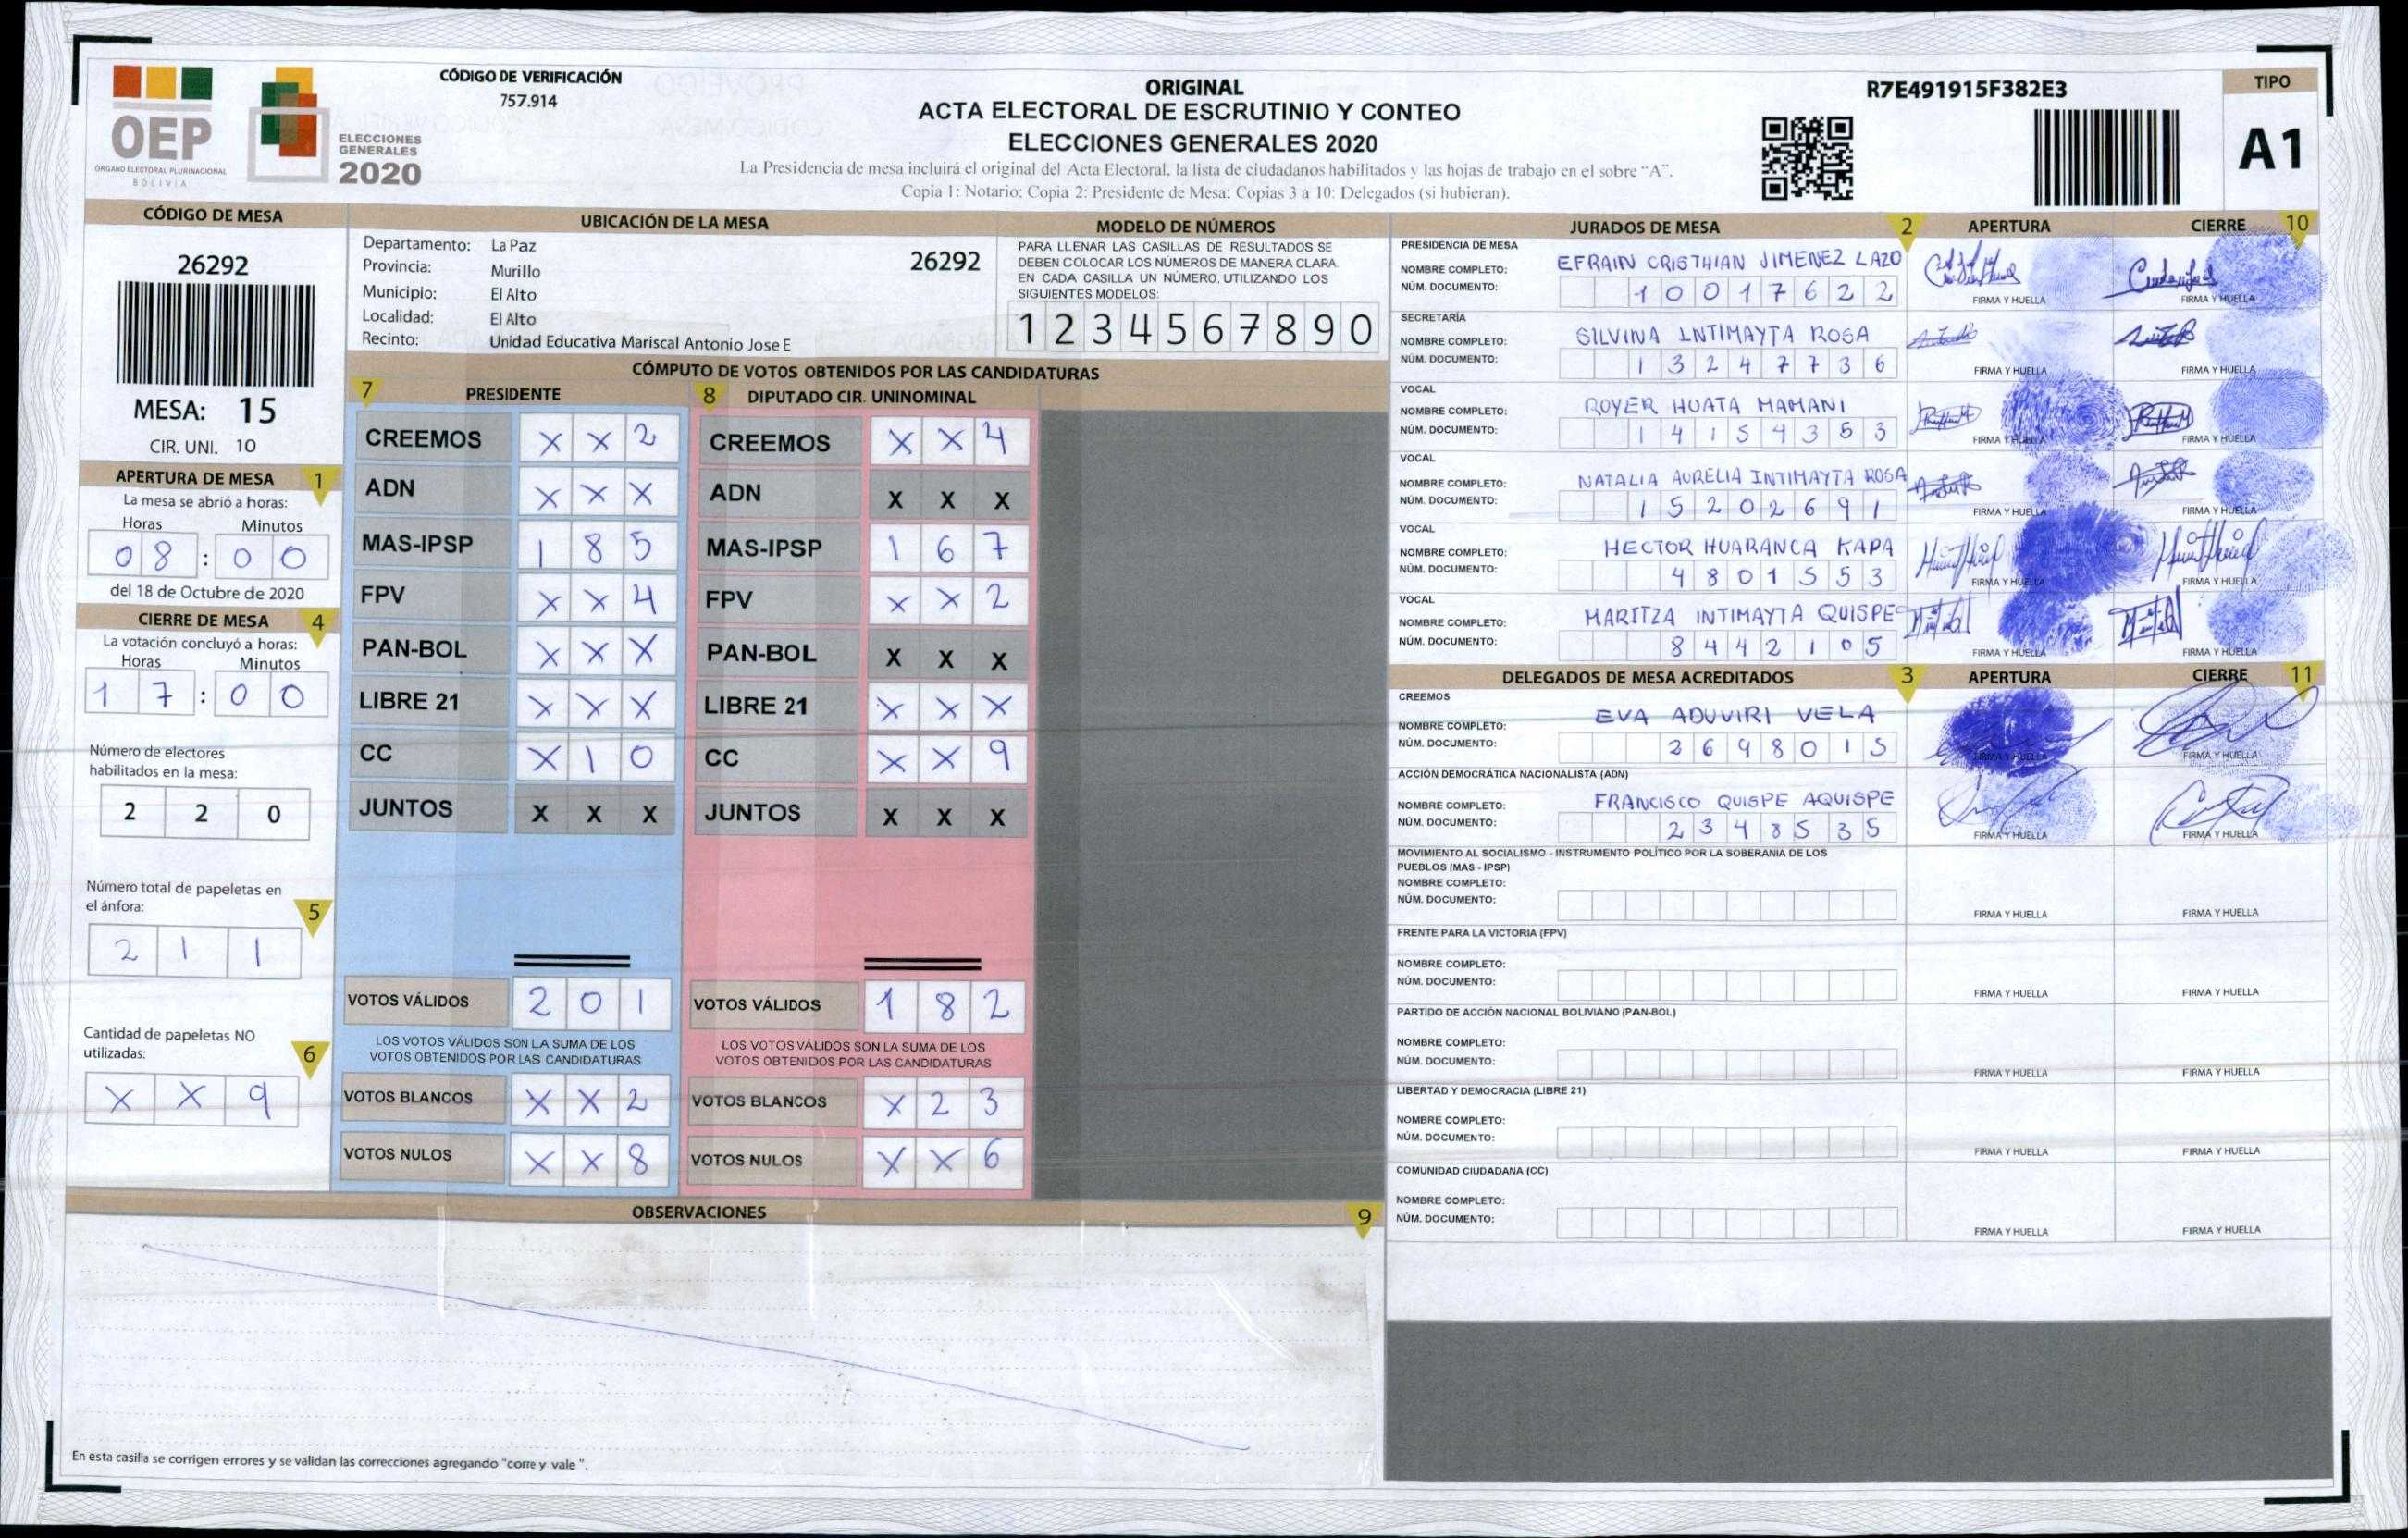 OEP
ÓRGANO ELECTORAL PLURINACIONAL
BOLIVIA
ELECCIONES
GENERALES
2020
CÓDIGO DE VERIFICACIÓN
757.914
ORIGINAL
ACTA ELECTORAL DE ESCRUTINIO Y CONTEO
ELECCIONES GENERALES 2020
La Presidencia de mesa incluirá el original del Acta Electoral, la lista de ciudadanos habilitados y las hojas de trabajo en el sobre "A".
Copia 1: Notario; Copia 2: Presidente de Mesa; Copias 3 a 10: Delegados (si hubieran).
R7E491915F382E3
TIPO
A1
CÓDIGO DE MESA
26292
MESA: 15
CIR. UNI. 10
APERTURA DE MESA 1
La mesa se abrió a horas:
Horas Minutos
08 : 00
del 18 de Octubre de 2020
CIERRE DE MESA 4
La votación concluyó a horas:
Horas Minutos
17 : 00
Número de electores
habilitados en la mesa:
2 2 0
Número total de papeletas en
el ánfora: 5
2 1 1
Cantidad de papeletas NO
utilizadas: 6
X X 9
UBICACIÓN DE LA MESA
Departamento: La Paz
Provincia: Murillo
Municipio: El Alto
Localidad: El Alto
Recinto: Unidad Educativa Mariscal Antonio Jose E
26292
MODELO DE NÚMEROS
PARA LLENAR LAS CASILLAS DE RESULTADOS SE
DEBEN COLOCAR LOS NÚMEROS DE MANERA CLARA.
EN CADA CASILLA UN NÚMERO, UTILIZANDO LOS
SIGUIENTES MODELOS:
1 2 3 4 5 6 7 8 9 0
CÓMPUTO DE VOTOS OBTENIDOS POR LAS CANDIDATURAS
7 PRESIDENTE
CREEMOS X X 2
ADN X X X
MAS-IPSP 1 8 5
FPV X X 4
PAN-BOL X X X
LIBRE 21 X X X
CC X 1 0
JUNTOS X X X
VOTOS VÁLIDOS 2 0 1
LOS VOTOS VÁLIDOS SON LA SUMA DE LOS
VOTOS OBTENIDOS POR LAS CANDIDATURAS
VOTOS BLANCOS X X 2
VOTOS NULOS X X 8
8 DIPUTADO CIR. UNINOMINAL
CREEMOS X X 4
ADN X X X
MAS-IPSP 1 6 7
FPV X X 2
PAN-BOL X X X
LIBRE 21 X X X
CC X X 9
JUNTOS X X X
VOTOS VÁLIDOS 1 8 2
LOS VOTOS VÁLIDOS SON LA SUMA DE LOS
VOTOS OBTENIDOS POR LAS CANDIDATURAS
VOTOS BLANCOS X 2 3
VOTOS NULOS X X 6
OBSERVACIONES 9
En esta casilla se corrigen errores y se validan las correcciones agregando "corre y vale ".
JURADOS DE MESA 2 APERTURA CIERRE 10
PRESIDENCIA DE MESA
NOMBRE COMPLETO: EFRAIN CRISTHIAN JIMENEZ LAZO
NÚM. DOCUMENTO: 10017622
FIRMA Y HUELLA FIRMA Y HUELLA
SECRETARÍA
NOMBRE COMPLETO: SILVINA INTIMAYTA ROSA
NÚM. DOCUMENTO: 13247736
FIRMA Y HUELLA FIRMA Y HUELLA
VOCAL
NOMBRE COMPLETO: ROYER HUATA MAMANI
NÚM. DOCUMENTO: 14154353
FIRMA Y HUELLA FIRMA Y HUELLA
VOCAL
NOMBRE COMPLETO: NATALIA AURELIA INTIMAYTA ROSA
NÚM. DOCUMENTO: 15202691
FIRMA Y HUELLA FIRMA Y HUELLA
VOCAL
NOMBRE COMPLETO: HECTOR HUARANCA KAPA
NÚM. DOCUMENTO: 4801553
FIRMA Y HUELLA FIRMA Y HUELLA
VOCAL
NOMBRE COMPLETO: MARITZA INTIMAYTA QUISPE
NÚM. DOCUMENTO: 8442105
FIRMA Y HUELLA FIRMA Y HUELLA
DELEGADOS DE MESA ACREDITADOS 3 APERTURA CIERRE 11
CREEMOS
NOMBRE COMPLETO: EVA ADUVIRI VELA
NÚM. DOCUMENTO: 2698015
FIRMA Y HUELLA FIRMA Y HUELLA
ACCIÓN DEMOCRÁTICA NACIONALISTA (ADN)
NOMBRE COMPLETO: FRANCISCO QUISPE AQUISPE
NÚM. DOCUMENTO: 2348535
FIRMA Y HUELLA FIRMA Y HUELLA
MOVIMIENTO AL SOCIALISMO - INSTRUMENTO POLÍTICO POR LA SOBERANIA DE LOS
PUEBLOS (MAS - IPSP)
NOMBRE COMPLETO:
NÚM. DOCUMENTO:
FIRMA Y HUELLA FIRMA Y HUELLA
FRENTE PARA LA VICTORIA (FPV)
NOMBRE COMPLETO:
NÚM. DOCUMENTO:
FIRMA Y HUELLA FIRMA Y HUELLA
PARTIDO DE ACCIÓN NACIONAL BOLIVIANO (PAN-BOL)
NOMBRE COMPLETO:
NÚM. DOCUMENTO:
FIRMA Y HUELLA FIRMA Y HUELLA
LIBERTAD Y DEMOCRACIA (LIBRE 21)
NOMBRE COMPLETO:
NÚM. DOCUMENTO:
FIRMA Y HUELLA FIRMA Y HUELLA
COMUNIDAD CIUDADANA (CC)
NOMBRE COMPLETO:
NÚM. DOCUMENTO:
FIRMA Y HUELLA FIRMA Y HUELLA